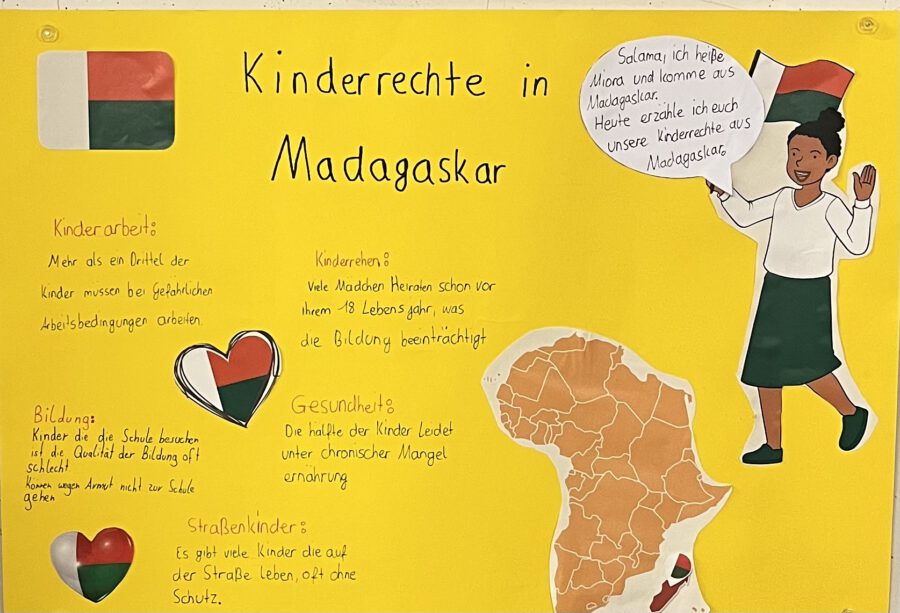 Kinderrechte in
Madagaskar
Salama, ich heiße
Miora und komme aus
Madagaskar.
Heute erzähle ich euch
unsere Kinderrechte aus
Madagaskar.
Kinderarbeit:
Mehr als ein Drittel der
Kinder mussen bei Gefährlichen
Arbeitsbedingungen arbeiten.
Kinderrehen:
Viele Mädchen Heiraten schon vor
ihrem 18 Lebensjahr, was
die Bildung beeinträchtigt
Bildung:
Kinder die die Schule besuchen
ist die Qualität der Bildung oft
schlecht
Können wegen Armut nicht zur Schule
gehen
Gesundheit:
Die hälfte der Kinder Leidet
unter chronischer Mangel
ernährung
Straßenkinder:
Es gibt viele Kinder die auf
der Straße Leben, oft ohne
Schutz.